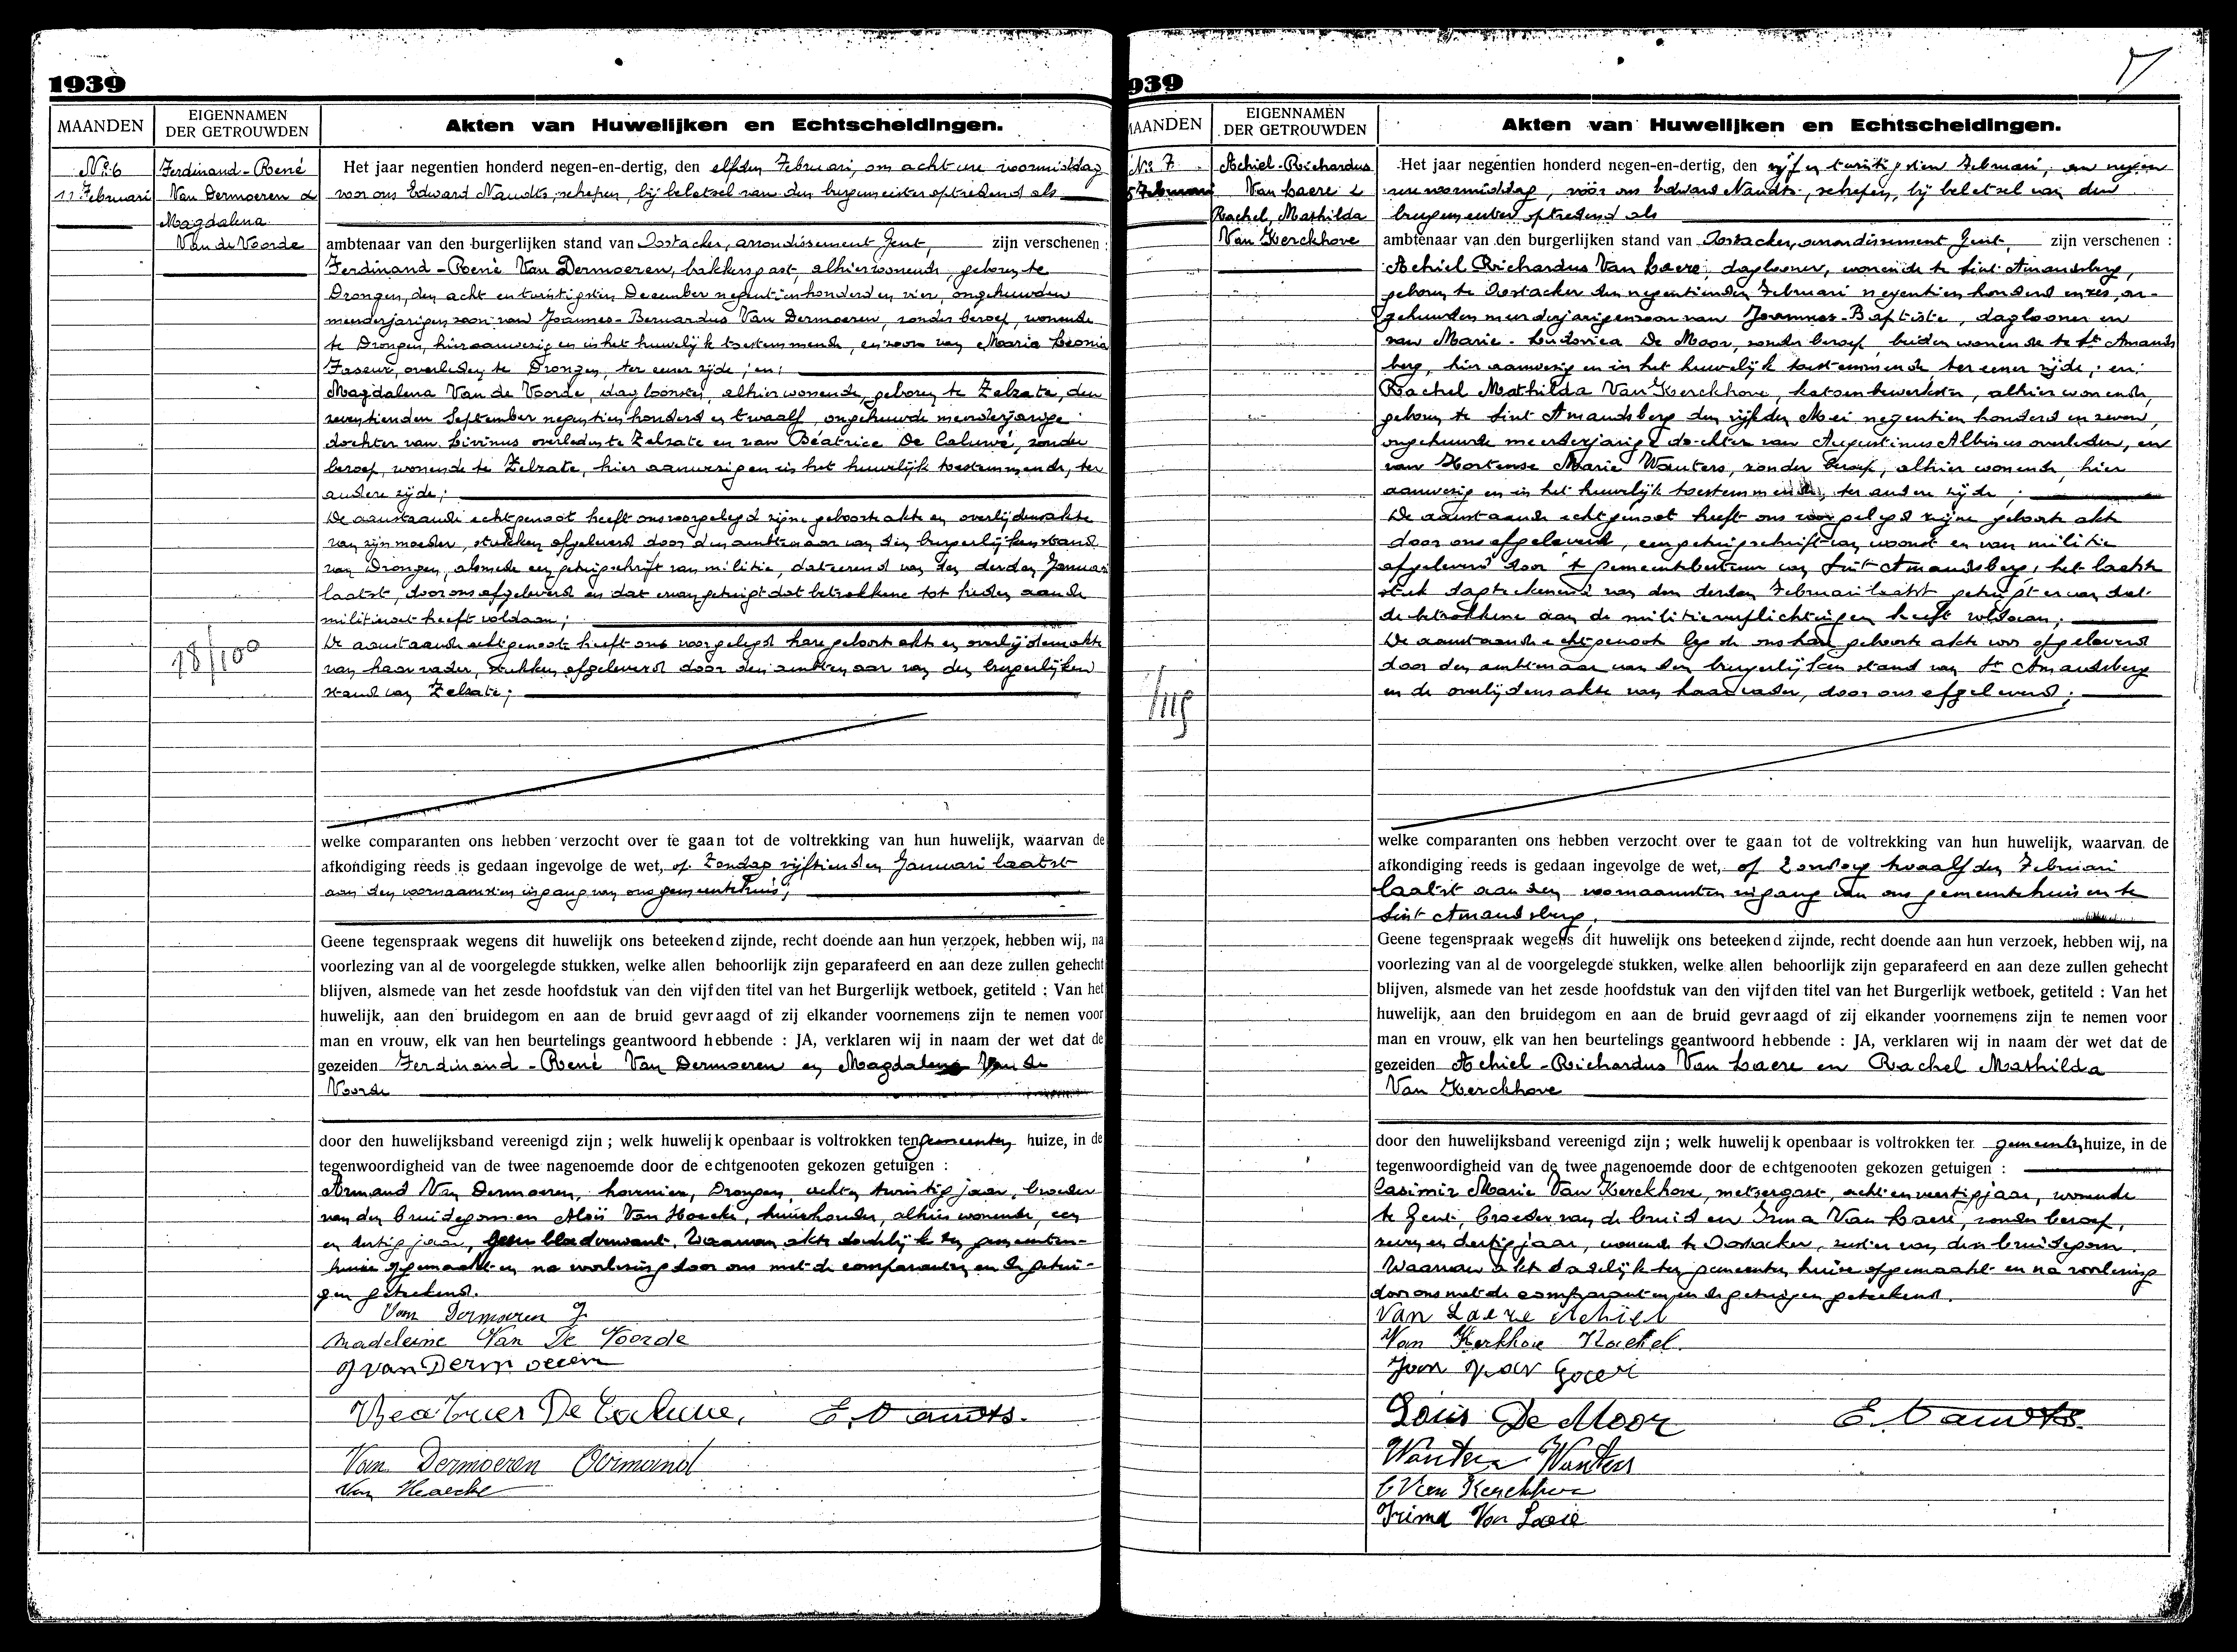 1939
MAANDEN
EIGENNAMEN
DER GETROUWDEN
Akten van Huwelijken en Echtscheidingen.
No 6
11 Februari
Ferdinand-René
Van Dermoeren &
Magdalena
Van de Voorde
18/100
Het jaar negentien honderd negen-en-dertig, den elfden Februari, om acht ure voormiddag
voor ons Edward Naudts, schepen, bij beletsel van den burgemeester optredend als
ambtenaar van den burgerlijken stand van Oostacker, arrondissement Gent, zijn verschenen :
Ferdinand-René Van Dermoeren, bakkersgast, alhier wonende, geboren te
Drongen, den acht en twintigsten December negentienhonderd en vier, ongehuwden
meerderjarigen zoon van Joannes-Bernardus Van Dermoeren, zonder beroep, wonende
te Drongen, hier aanwezig en in het huwelijk toestemmende, en zoon van Maria Leonia
Faseur, overleden te Drongen, ter eener zijde ; en :
Magdalena Van de Voorde, dagloonster, alhier wonende, geboren te Zelzate, den
zeventienden September negentien honderd en twaalf, ongehuwde meerderjarige
dochter van Livinus overleden te Zelzate en van Béatrice De Caluwé, zonder
beroep, wonende te Zelzate, hier aanwezig en in het huwelijk toestemmende, ter
andere zijde ;
De aanstaande echtgenoot heeft ons voorgelegd zijne geboorteakte en overlijdensakte
van zijn moeder, stukken afgeleverd door den ambtenaar van den burgerlijken stand
van Drongen, alsmede een getuigschrift van militie, dateerend van den derden Januari
laatst, door ons afgeleverd en dat ervan getuigt dat betrokkene tot heden aan de
militiewet heeft voldaan ;
De aanstaande echtgenoote heeft ons voorgelegd hare geboorteakte en overlijdensakte
van haar vader, stukken afgeleverd door den ambtenaar van den burgerlijken
stand van Zelzate ;
welke comparanten ons hebben verzocht over te gaan tot de voltrekking van hun huwelijk, waarvan de
afkondiging reeds is gedaan ingevolge de wet, op Zondag vijftienden Januari laatst
aan den voornaamsten ingang van ons gemeentehuis ;
Geene tegenspraak wegens dit huwelijk ons beteekend zijnde, recht doende aan hun verzoek, hebben wij, na
voorlezing van al de voorgelegde stukken, welke allen behoorlijk zijn geparafeerd en aan deze zullen gehecht
blijven, alsmede van het zesde hoofdstuk van den vijfden titel van het Burgerlijk wetboek, getiteld : Van het
huwelijk, aan den bruidegom en aan de bruid gevraagd of zij elkander voornemens zijn te nemen voor
man en vrouw, elk van hen beurtelings geantwoord hebbende : JA, verklaren wij in naam der wet dat de
gezeiden Ferdinand-René Van Dermoeren en Magdalena Van de
Voorde
door den huwelijksband vereenigd zijn ; welk huwelijk openbaar is voltrokken ten gemeenten huize, in de
tegenwoordigheid van de twee nagenoemde door de echtgenooten gekozen getuigen :
Armand Van Dermoeren, hovenier, Drongen, acht en twintig jaar, broeder
van den bruidegom en Aloïs Van Haecke, huishouder, alhier wonende, een
en dertig jaar, Waarvan akte dadelijk ten gemeenten-
huize opgemaakt en na voorlezing door ons met de comparanten en de getui-
gen geteekend.
Van Dermoeren F
Madeleine Van De Voorde
J van Dermoeren
Beatrice De Caluwe, E. Naudts.
Van Dermoeren Armand
Van Haecke
939
MAANDEN
EIGENNAMEN
DER GETROUWDEN
Akten van Huwelijken en Echtscheidingen.
No 7
5 Februari
Achiel-Richardus
Van Laere &
Rachel, Mathilda
Van Kerckhove
Het jaar negentien honderd negen-en-dertig, den vijf en twintigsten Februari, om negen
ure voormiddag, vóór ons Edward Naudts, schepen, bij beletsel van den
burgemeester optredend als
ambtenaar van den burgerlijken stand van Oostacker, arrondissement Gent, zijn verschenen :
Achiel Richardus Van Laere, daglooner, wonende te Sint-Amandsberg,
geboren te Oostacker den negentienden Februari negentien honderd en zes, on-
gehuwden meerderjarigen zoon van Joannes-Baptiste, daglooner en
van Marie-Ludovica De Moor, zonder beroep, beiden wonende te St Amands
berg, hier aanwezig en in het huwelijk toestemmende ter eener zijde ; en :
Rachel Mathilda Van Kerckhove, katoenbewerkster, alhier wonende,
geboren te Sint Amandsberg den vijfden Mei negentien honderd en zeven,
ongehuwde meerderjarige dochter van Augustinus Albinus overleden, en
van Hortense Marie Wauters, zonder beroep, alhier wonende, hier
aanwezig en in het huwelijk toestemmende, ter andere zijde ;
De aanstaande echtgenoot heeft ons voorgelegd zijne geboorteakte
door ons afgeleverd, een getuigschrift van woonst en van militie
afgeleverd door 't gemeentebestuur van Sint Amandsberg, het laatste
stuk dagteekenend van den derden Februari laatst getuigt ervan dat
de betrokkene aan de militieverplichtingen heeft voldaan ;
De aanstaande echtgenoote legde ons hare geboorteakte voor afgeleverd
door den ambtenaar van den burgerlijken stand van St Amandsberg
en de overlijdensakte van haar vader, door ons afgeleverd ;
welke comparanten ons hebben verzocht over te gaan tot de voltrekking van hun huwelijk, waarvan de
afkondiging reeds is gedaan ingevolge de wet, op Zondag twaalfden Februari
laatst aan den voornaamsten ingang van ons gemeentehuis en te
Sint Amandsberg,
Geene tegenspraak wegens dit huwelijk ons beteekend zijnde, recht doende aan hun verzoek, hebben wij, na
voorlezing van al de voorgelegde stukken, welke allen behoorlijk zijn geparafeerd en aan deze zullen gehecht
blijven, alsmede van het zesde hoofdstuk van den vijfden titel van het Burgerlijk wetboek, getiteld : Van het
huwelijk, aan den bruidegom en aan de bruid gevraagd of zij elkander voornemens zijn te nemen voor
man en vrouw, elk van hen beurtelings geantwoord hebbende : JA, verklaren wij in naam der wet dat de
gezeiden Achiel-Richardus Van Laere en Rachel Mathilda
Van Kerckhove
door den huwelijksband vereenigd zijn ; welk huwelijk openbaar is voltrokken ter gemeenten huize, in de
tegenwoordigheid van de twee nagenoemde door de echtgenooten gekozen getuigen :
Casimir Marie Van Kerckhove, metsergast, acht en veertig jaar, wonende
te Gent, broeder van de bruid en Irma Van Laere, zonder beroep,
zeven en dertig jaar, wonende te Oostacker, zuster van den bruidegom.
Waarvan akte dadelijk ten gemeenten huize opgemaakt en na voorlezing
door ons met de comparanten en de getuigen geteekend.
Van Laere Achiel
Van Kerkhove Rachel
Joan Van Laere
Louis De Moor E. Naudts.
Wauters Wauters
C Van Kerckhove
Irima Van Laere